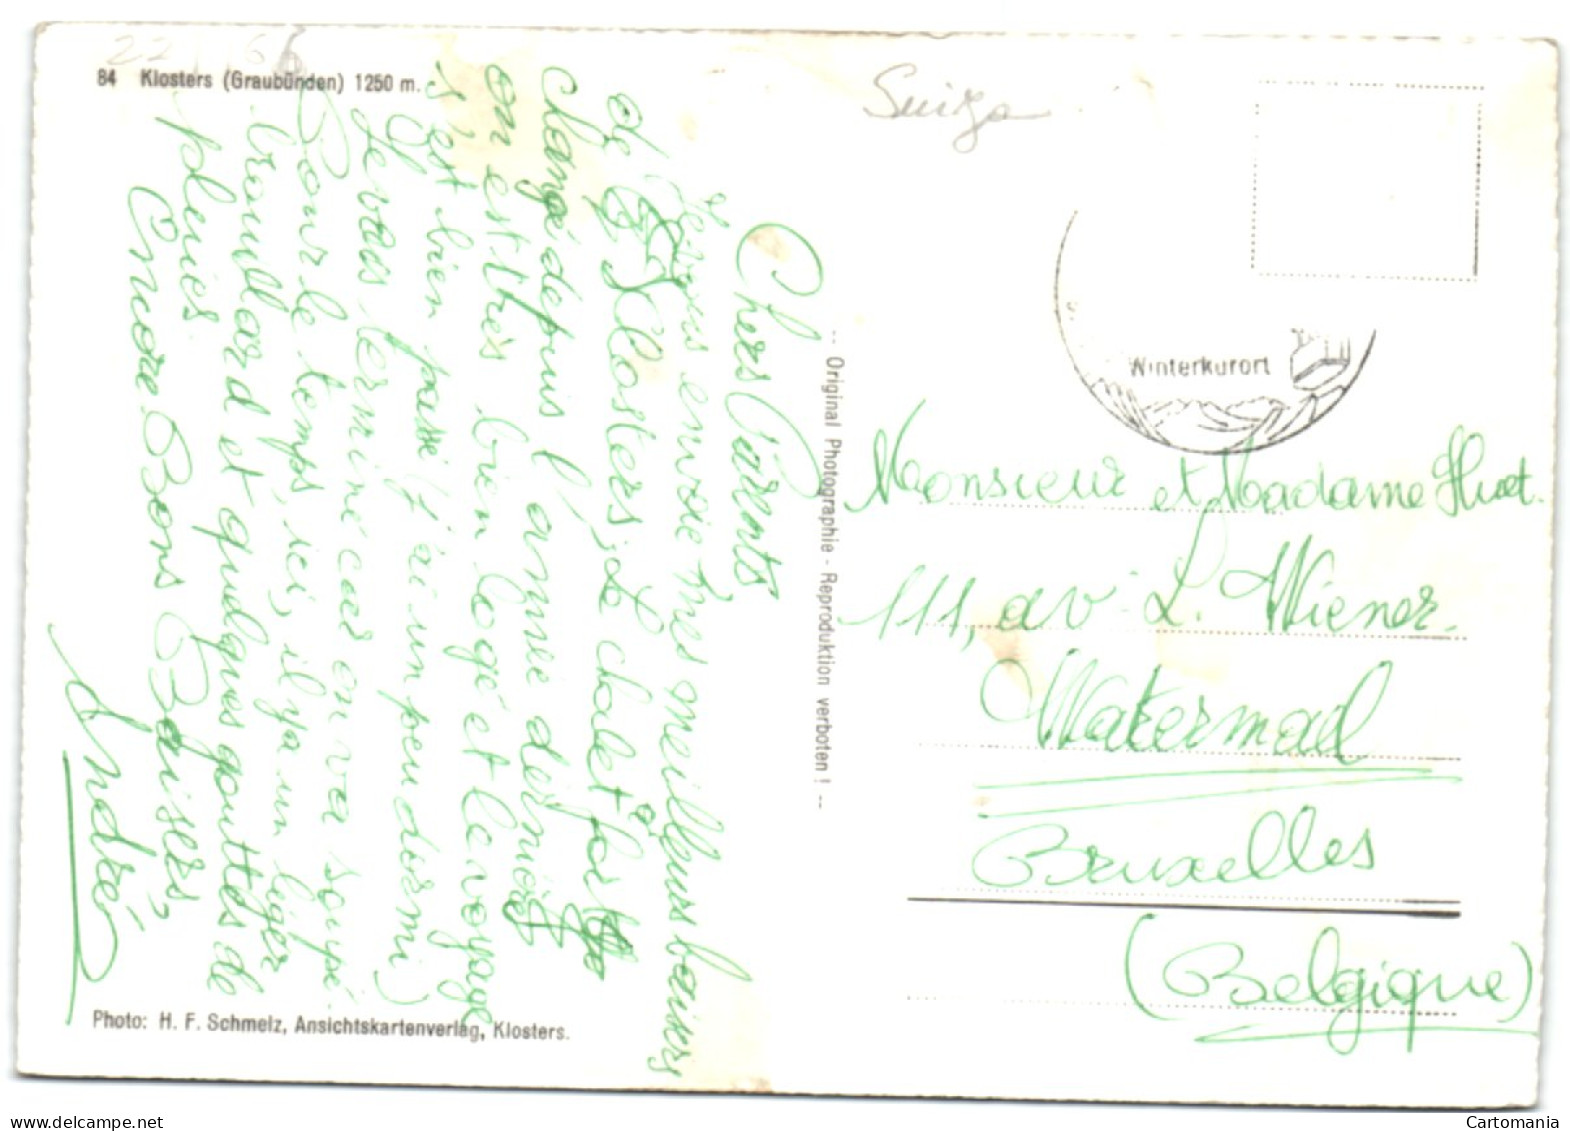 84 Klosters (Graubünden) 1250 m.
Suiza
Winterkurort
Chers Parents
Je vous envoie mes meilleurs baisers
de Klosters, le chalet
changé depuis l'année dernière
on est très bien logé et le voyage
s'est bien passé (j'ai un peu dormi)
Je vais terminé car on va soupé.
Pour le temps, ici, il y a un léger
brouillard et quelques gouttes de
pluies
Encore Bons Baisers,
André
-- Original Photographie - Reproduktion verboten! --
Monsieur et Madame Huet.
111, av. L. Wiener.
Watermael
Bruxelles
(Belgique)
Photo: H. F. Schmelz, Ansichtskartenverlag, Klosters.
Cartomania